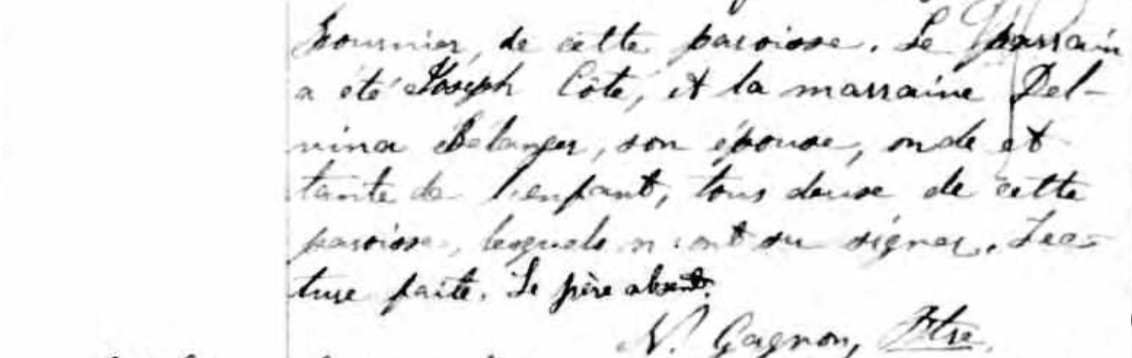 Fournier, de cette paroisse. Le parrain
a été Joseph Côté, et la marraine Del-
vina Belanger, son épouse, oncle et
tante de l'enfant, tous deux de cette
paroisse, lesquels n'ont su signer. Lec-
ture faite. Le père absent.
N. Gagnon, Ptre